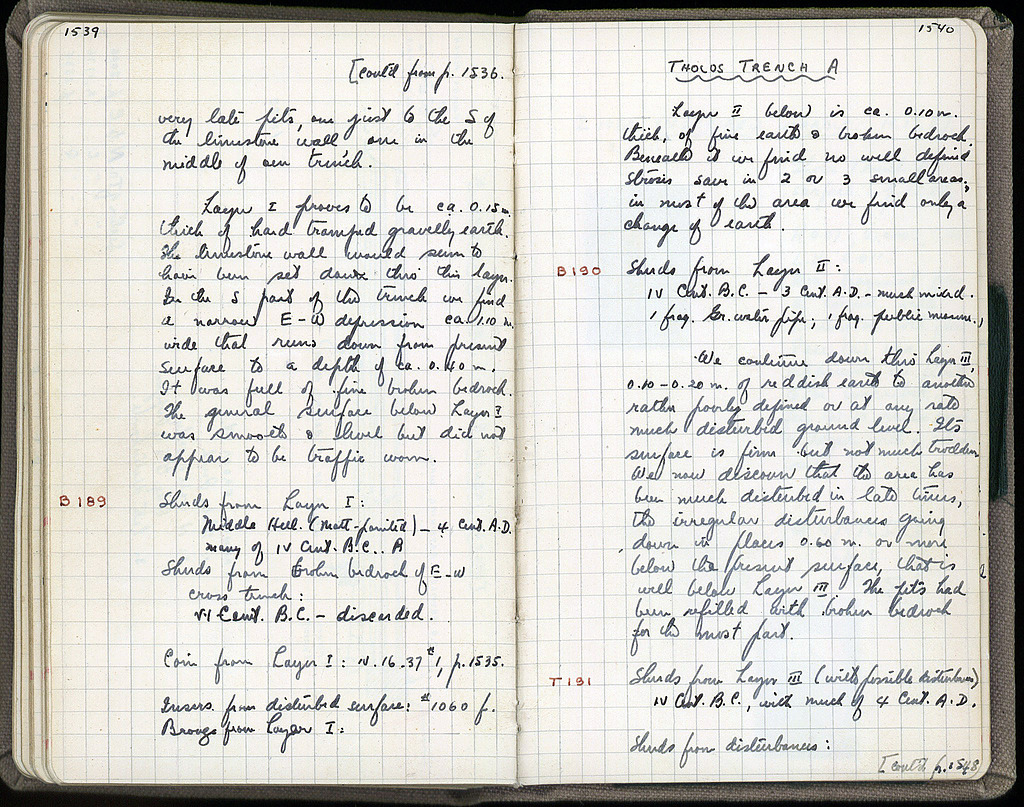 1539
[cont'd from p. 1536.
very late pits, one just to the S of
the limestone wall one in the
middle of our trench.
Layer I proves to be ca. 0.15 m.
thick of hard tramped gravelly earth.
The limestone wall would seem to
have been set down thro this layer.
In the S part of the trench we find
a narrow E-W depression ca. 1.10 m.
wide that runs down from present
surface to a depth of ca. 0.40 m.
It was full of fine broken bedrock.
The general surface below Layer I
was smooth & level but did not
appear to be traffic worn.
B 189 Sherds from Layer I:
Middle Hell. (Matt-painted) – 4 Cent. A.D.
many of IV Cent. B.C.
Sherds from broken bedrock of E-W
cross trench:
VI Cent. B.C. – discarded.
Coin from Layer I: N. 16.37 #1, p. 1535.
Inscrs. from disturbed surface: #1060 f.
Brought from Layer I:
1540
THOLOS TRENCH A
Layer II below is ca. 0.10 m.
thick, of fine earth & broken bedrock.
Beneath it we find no well defined
strosis save in 2 or 3 small areas;
in most of the area we find only a
change of earth.
B 190 Sherds from Layer II:
IV Cent. B.C. – 3 Cent. A.D. – much mixed.
1 frag. Gr. water pipe; 1 frag. public measure.
We continue down thro Layer III,
0.10–0.20 m. of reddish earth to another
rather poorly defined or at any rate
much disturbed ground level. Its
surface is firm but not much trodden
We now discern that the area has
been much disturbed in late times,
the irregular disturbances going
down in places 0.60 m. or more
below the present surface, that is
well below Layer III. The pits had
been refilled with broken bedrock
for the most part.
T 191 Sherds from Layer III (with possible disturbance)
IV Cent. B.C., with much of 4 Cent. A.D.
Sherds from disturbances:
[cont'd p. 1548